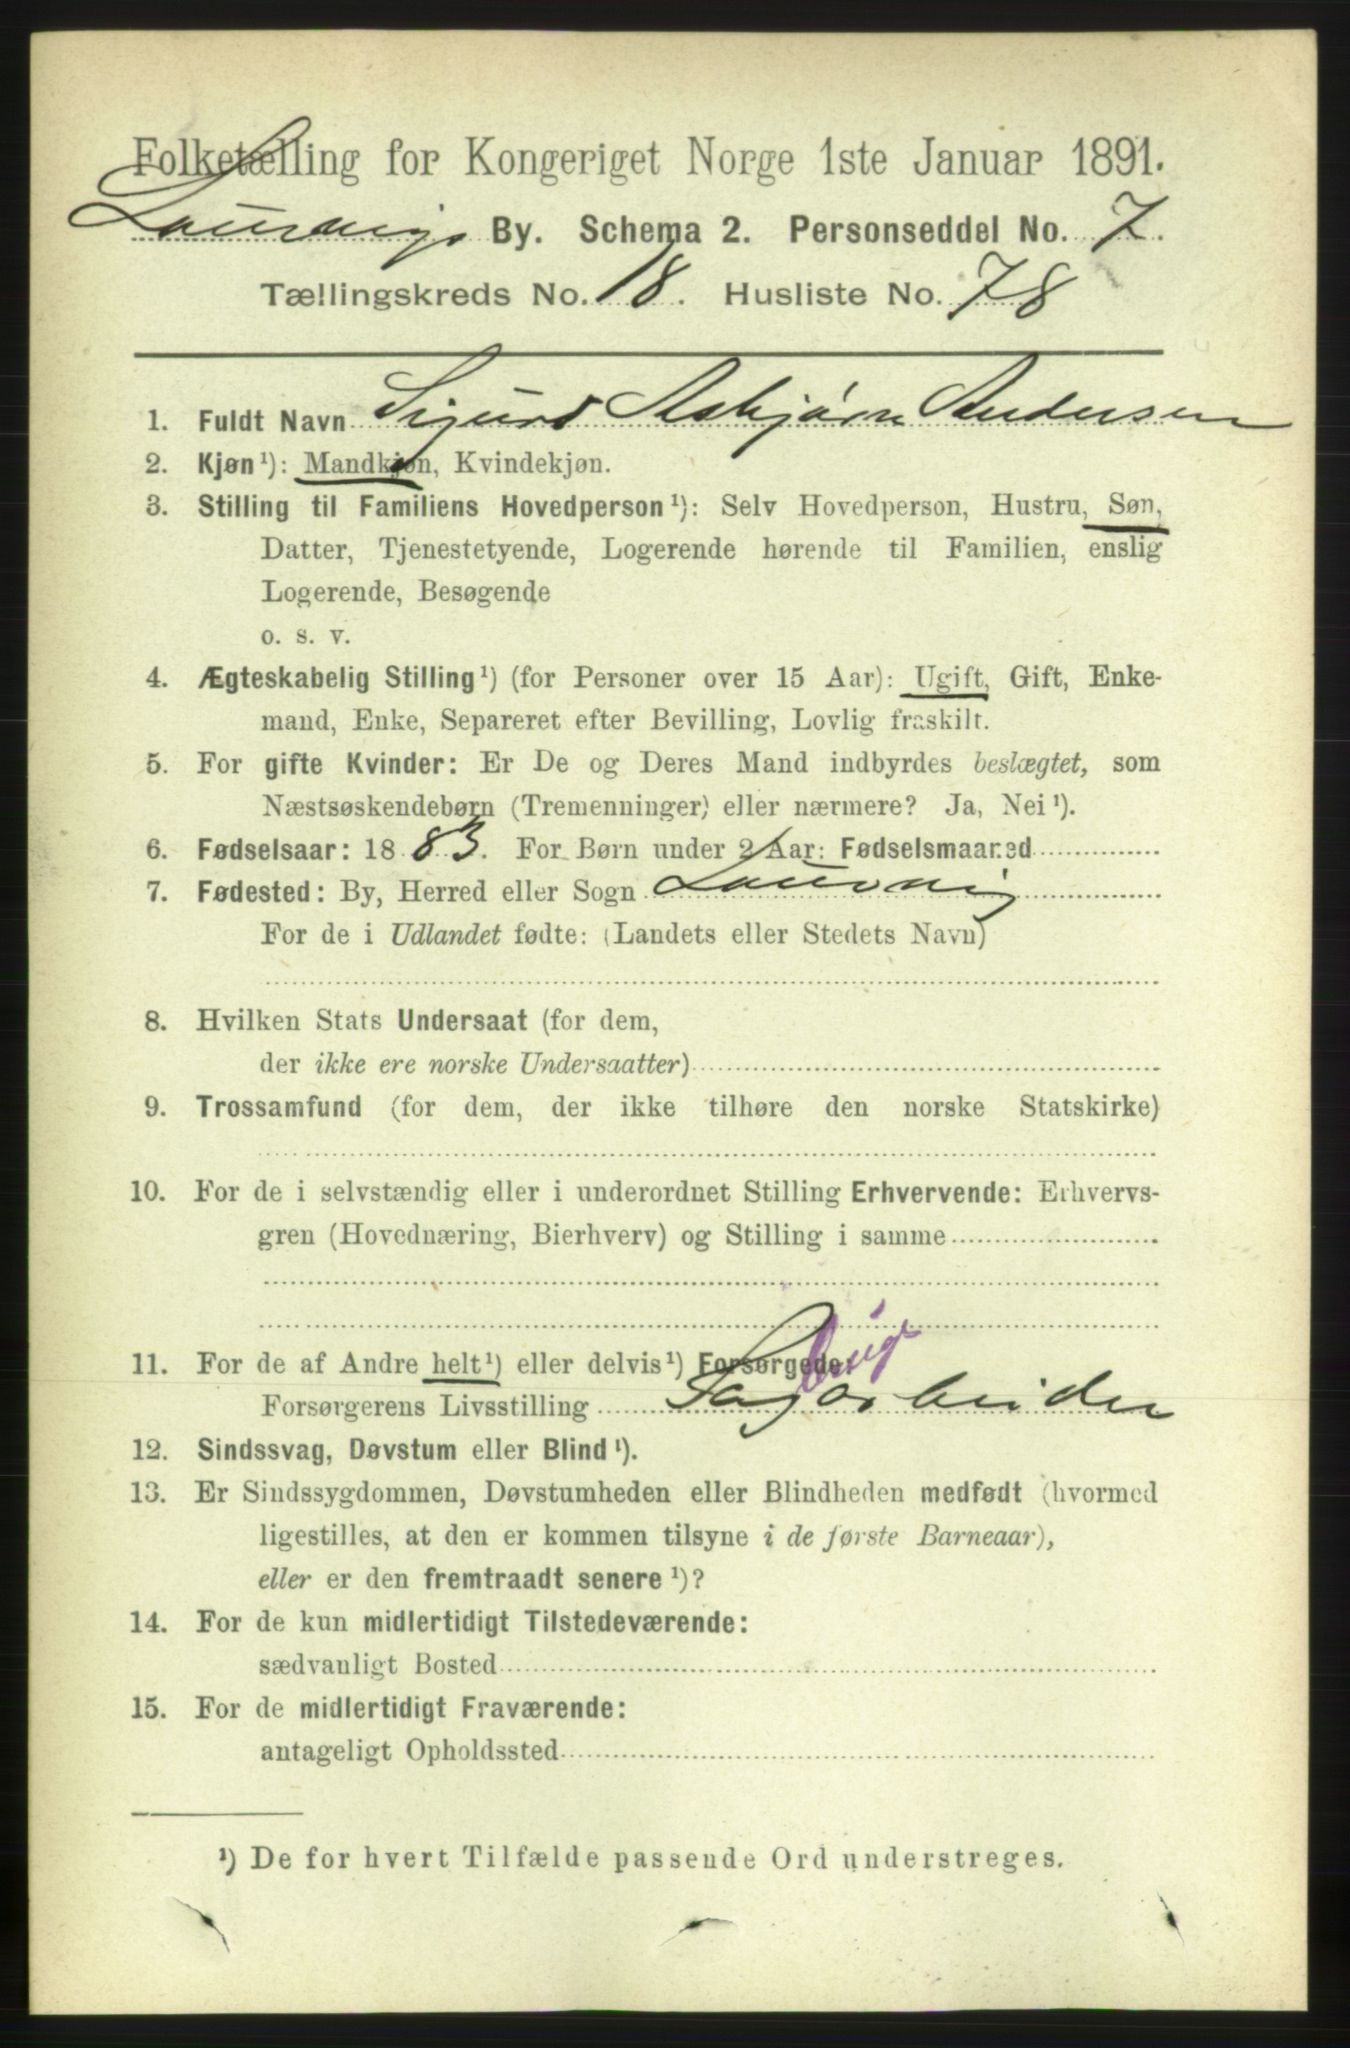 Folketælling for Kongeriget Norge 1ste Januar 1891.
Laurvigs By. Schema 2. Personseddel No. 7.
Tællingskreds No. 18. Husliste No. 78
1. Fuldt Navn Sigurd Asbjørn Andersen
2. Kjøn¹): Mandkjøn, Kvindekjøn.
3. Stilling til Familiens Hovedperson¹): Selv Hovedperson, Hustru, Søn,
Datter, Tjenestetyende, Logerende hørende til Familien, enslig
Logerende, Besøgende
o. s. v.
4. Ægteskabelig Stilling¹) (for Personer over 15 Aar): Ugift, Gift, Enke-
mand, Enke, Separeret efter Bevilling, Lovlig fraskilt.
5. For gifte Kvinder: Er De og Deres Mand indbyrdes beslægtet, som
Næstsøskendebørn (Tremenninger) eller nærmere? Ja, Nei¹).
6. Fødselsaar: 1883. For Børn under 2 Aar: Fødselsmaaned
7. Fødested: By, Herred eller Sogn Laurvig
For de i Udlandet fødte: (Landets eller Stedets Navn)
8. Hvilken Stats Undersaat (for dem,
der ikke ere norske Undersaatter)
9. Trossamfund (for dem, der ikke tilhøre den norske Statskirke)
10. For de i selvstændig eller i underordnet Stilling Erhvervende: Erhvervs-
gren (Hovednæring, Bierhverv) og Stilling i samme
11. For de af Andre helt¹) eller delvis¹) Forsørgede: brug
Forsørgerens Livsstilling Sagarbeider
12. Sindssvag, Døvstum eller Blind¹).
13. Er Sindssygdommen, Døvstumheden eller Blindheden medfødt (hvormed
ligestilles, at den er kommen tilsyne i de første Barneaar),
eller er den fremtraadt senere¹)?
14. For de kun midlertidigt Tilstedeværende:
sædvanligt Bosted
15. For de midlertidigt Fraværende:
antageligt Opholdssted
¹) De for hvert Tilfælde passende Ord understreges.